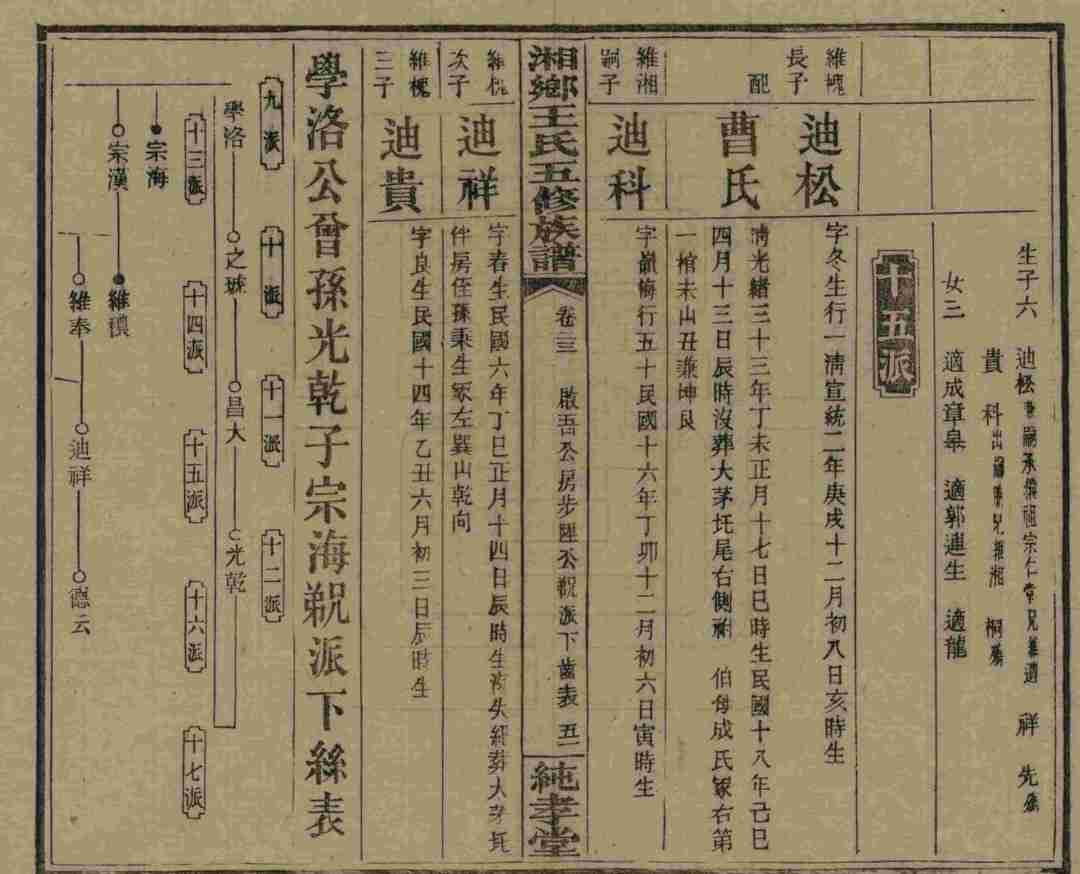 生子六 迪松 祥 先
貴 科出 維湘 桐
女三 適成章皋 適郭連生 適龍
十五派
維槐長子
迪松
字冬生行一清宣統二年庚戌十二月初八日亥時生
配
曹氏
清光緒三十三年丁未正月十七日巳時生民國十八年己巳
四月十三日辰時沒葬大茅坵尾右側祔 伯母成氏冢右第
一棺未山丑兼坤艮
維湘嗣子
迪科
字嶺梅行五十民國十六年丁卯十二月初六日寅時生
湘鄉王氏五修族譜
卷三 啟吾公房步陞公派下齒表 五一
純孝堂
維槐次子
迪祥
字春生民國六年丁巳正月十四日辰時生葬大茅坵
伴房侄孫秉生冢左巽山乾向
維槐三子
迪貴
字良生民國十四年乙丑六月初三日辰時生
學洛公曾孫光乾子宗海派下絲表
九派 十派 十一派 十二派
學洛 之 昌大 光乾
十三派 十四派 十五派 十六派 十七派
宗海
宗漢 維
維奉 迪祥 德云